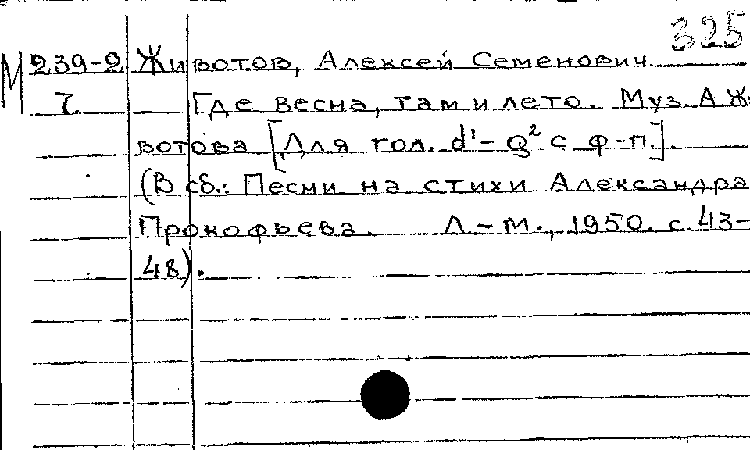 325
М 239-2 Животов, Алексей Семенович.
7 Где весна, там и лето. Муз. А Жи
вотова [Для гол. d¹-g² с ф-п].
(В сб.: Песни на стихи Александра
Прокофьева. Л.-М., 1950. с. 43-
48).